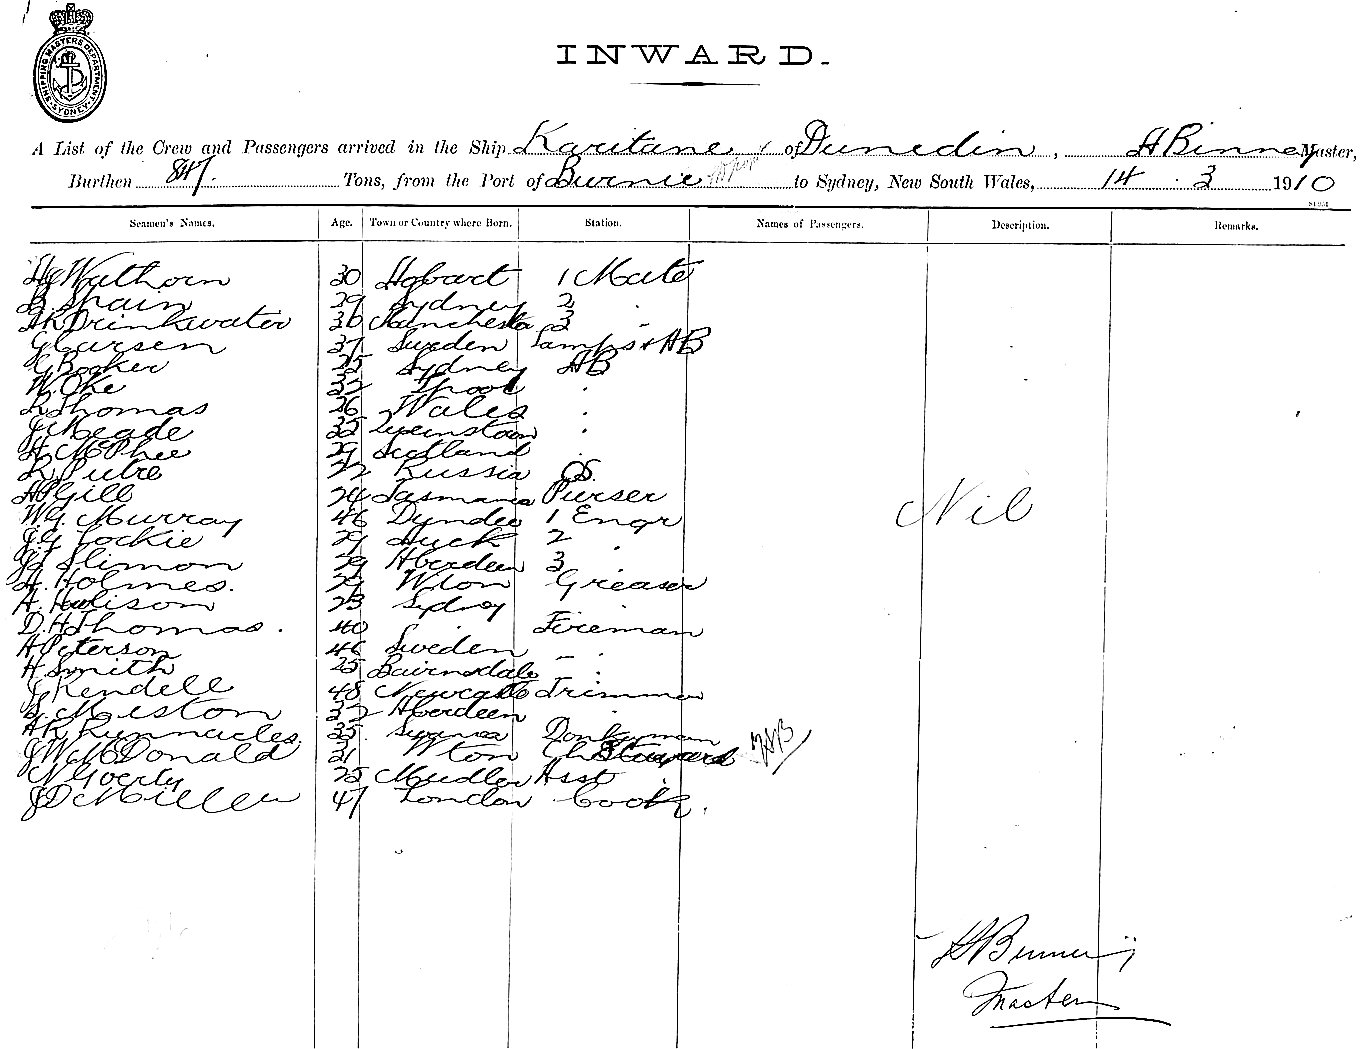 SHIPPING MASTERS DEPARTMENT SYDNEY
INWARD.
A List of the Crew and Passengers arrived in the Ship Karitane of Dunedin, H Binney Master,
Burthen 847. Tons, from the Port of Burnie to Sydney, New South Wales, 14 . 3 1910
Seamen's Names. Age. Town or Country where Born. Station. Names of Passengers. Description. Remarks.
Wathorn 30 Hobart 1 Mate
B. Spain 29 Sydney 2 "
Drinkwater 36 Manchester 3 "
G Larsen 37 Sweden Lamps & AB
G Booker 25 Sydney AB
W. Oke 22 Lpool "
L Thomas 26 Wales "
J Meade 32 Queenstown "
A McPhee 29 Scotland
22 Russia OS.
HP Gill 24 Tasmania Purser
Nil
W.G. Murray 46 Dundee 1 Engr
J.G. Lockie 29 2 "
J. Slimon 29 Aberdeen 3 "
A. Holmes. 29 Wton Greaser
A. 23 Sydney
D.H Thomas. 40 " Fireman
H Peterson 46 Sweden "
H Smith 25 Bairnsdale "
G Rendell 48 Newcastle Trimmer
S. Meston 22 Aberdeen "
35 Swansea Donkeyman
J W McDonald 21 Wton Ch Steward
N Goerty 25 Asst
JD Miller 47 London Cook.
H Binney
Master